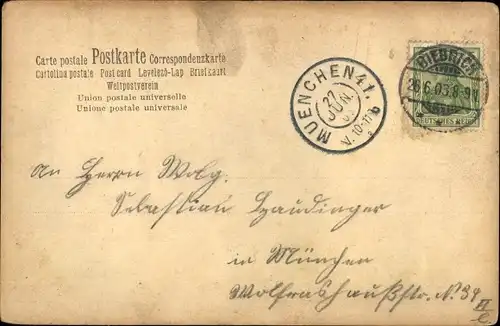 Carte postale Postkarte Correspondenzkarte
Cartolina postale Post card Levelező-Lap Briefkaart
Weltpostverein
Union postale universelle
Unione postale universale
MUENCHEN 41.
27
JUN
V. 10-11
b
BIEBRICH
26.6.03.8-9V.
DEUTSCHES REICH
An Herrn Wolfg.
Sebastian Haudinger
in München
Wolfratshaußstr. N. 34